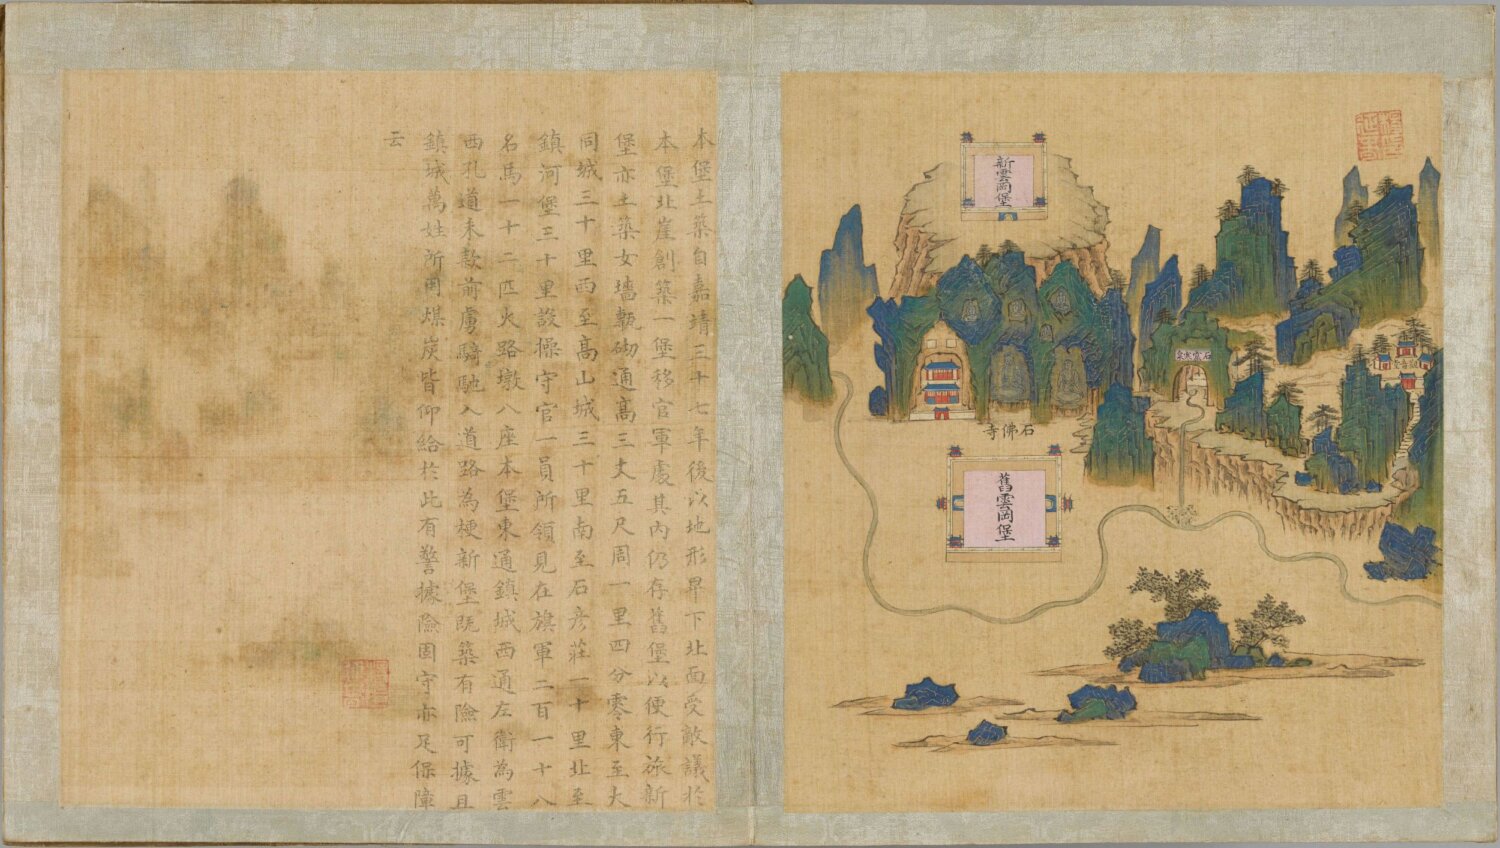 新雲岡堡
石佛寺
舊雲岡堡
本堡土築自嘉靖三十七年後以地形卑下北面受敵議於
本堡北崖創築一堡移官軍處其內仍存舊堡以便行旅新
堡亦土築女墻甎砌通高三丈五尺周一里四分零東至大
同城三十里西至高山城三十里南至石彥莊一十里北至
鎮河堡三十里設操守官一員所領見在旗軍二百一十八
名馬一十二匹火路墩八座本堡東通鎮城西通左衛為雲
西孔道未款前虜騎馳入道路為梗新堡既築有險可據且
鎮城萬姓所用煤炭皆仰給於此有警據險固守亦足保障
云